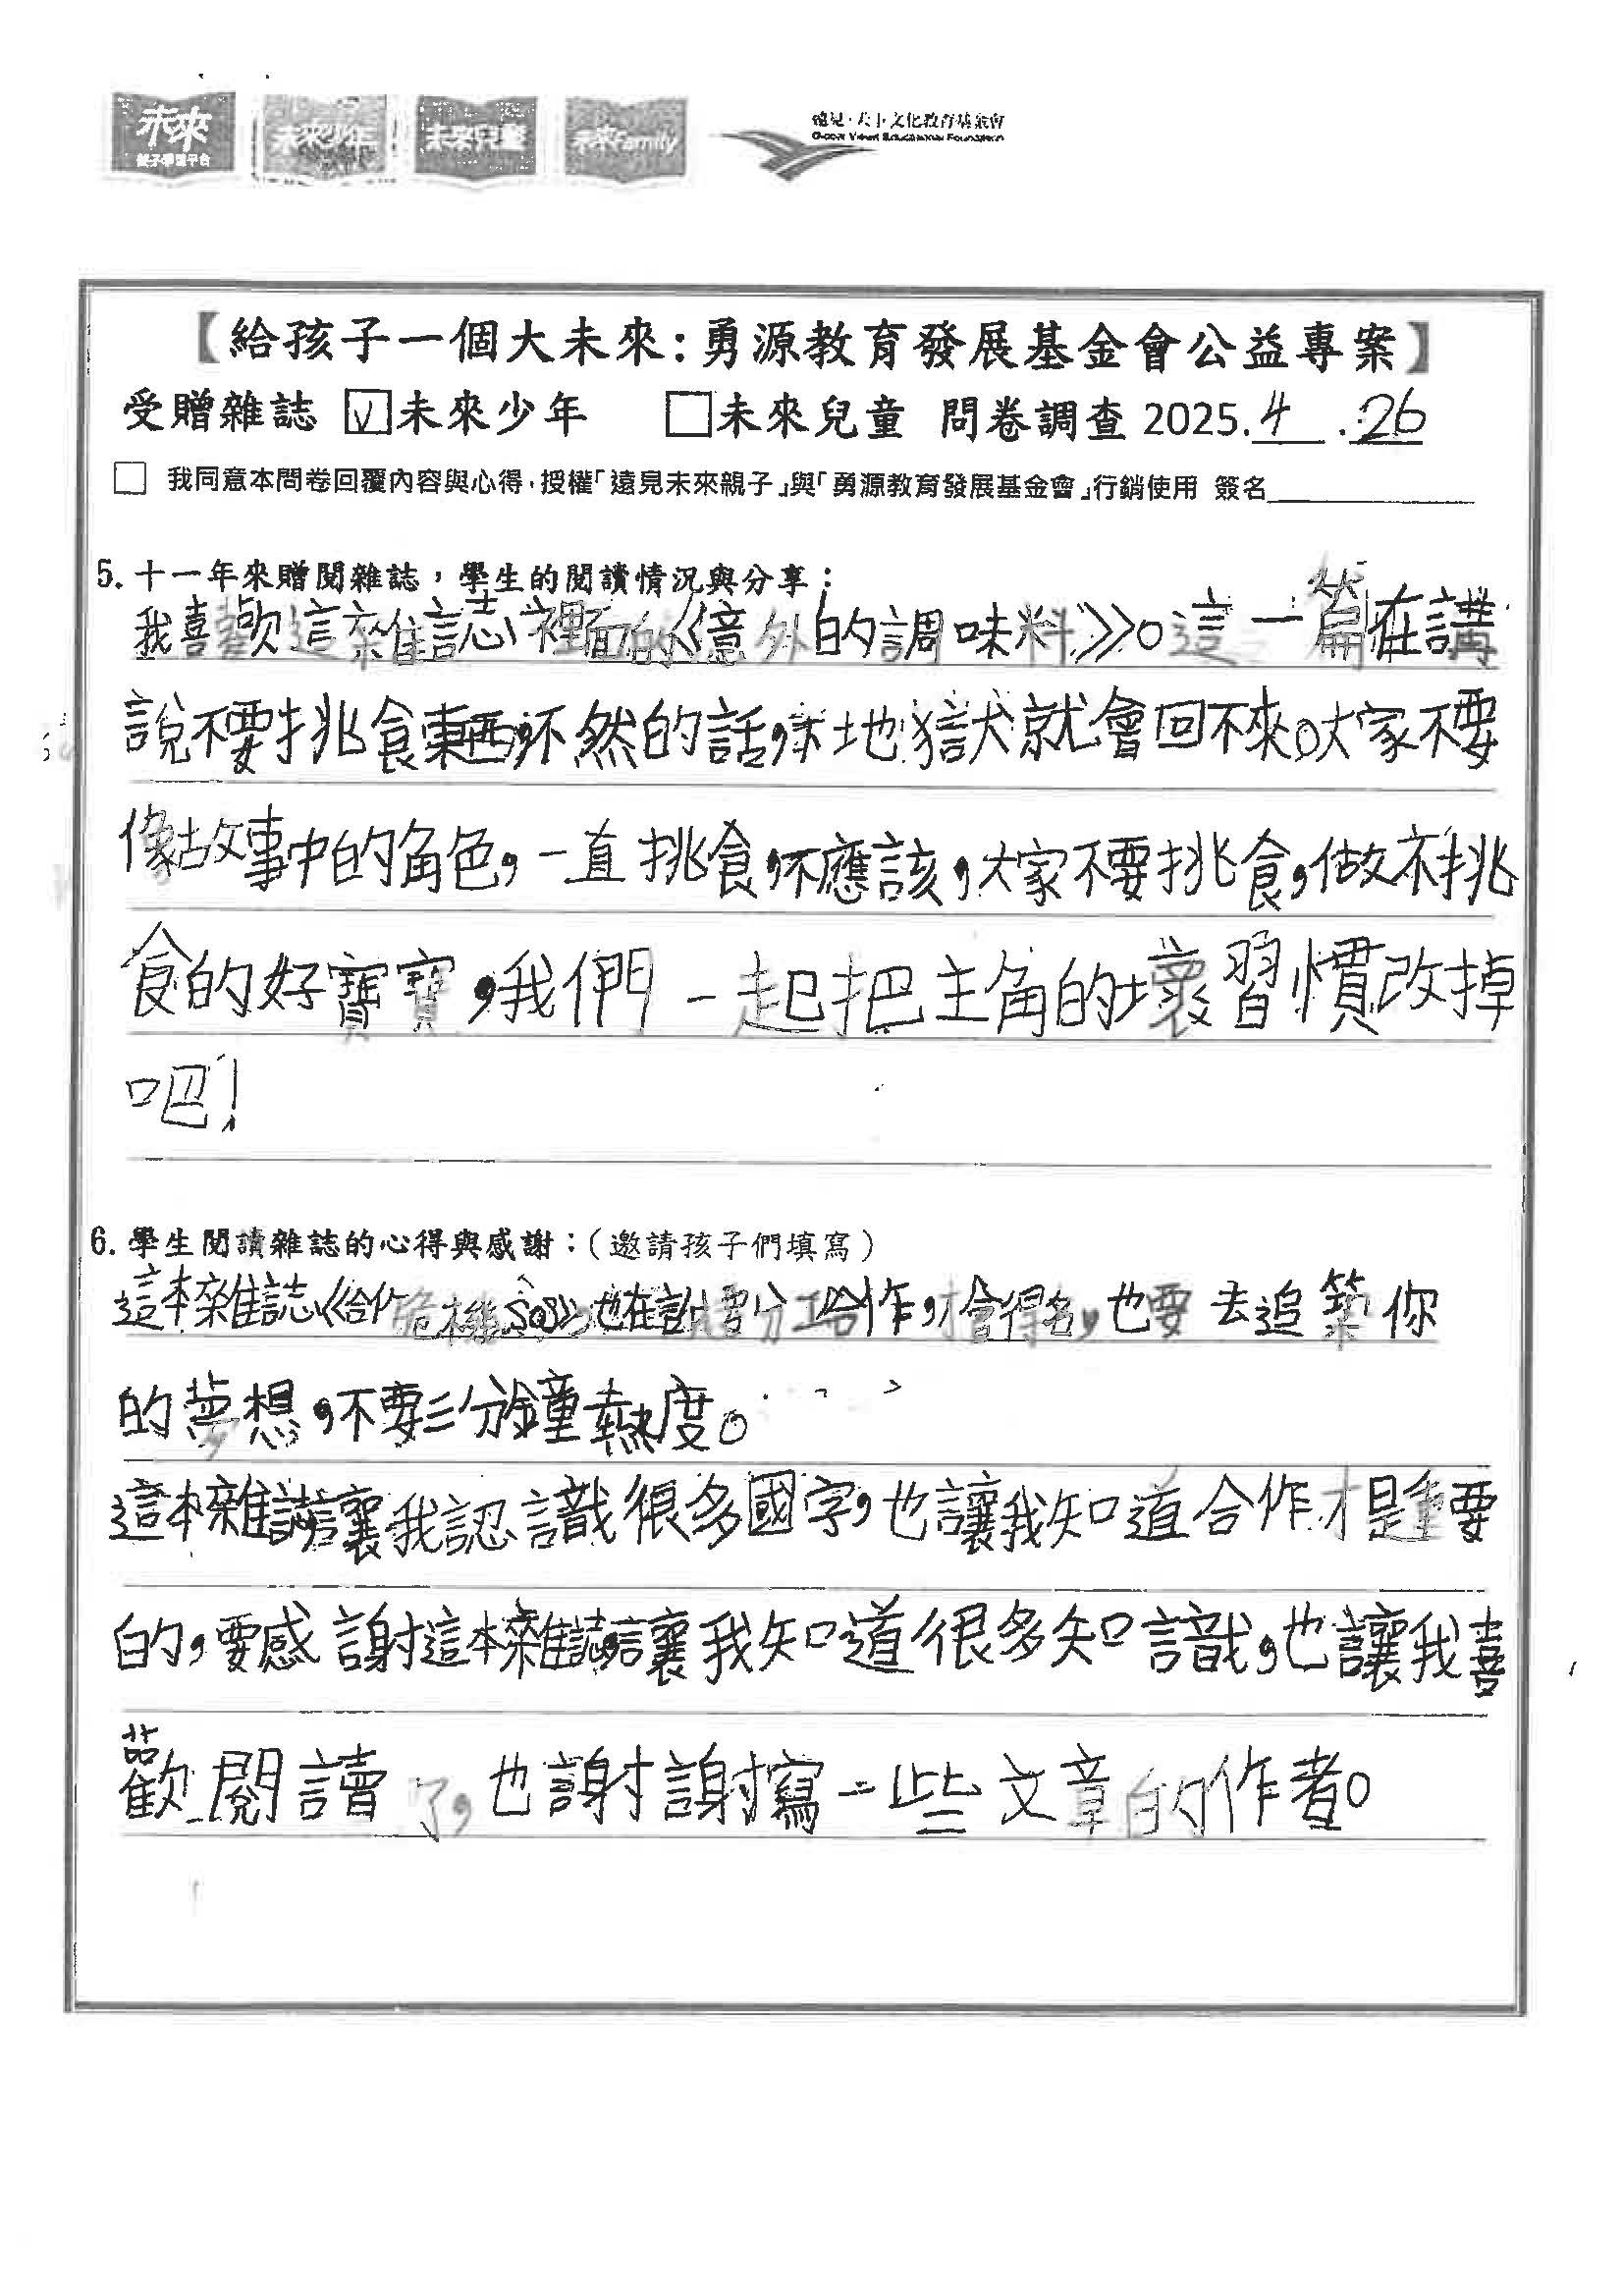 未來
親子學習平台
未來少年
未來兒童
未來Family
遠見·天下文化教育基金會
Global Views Educational Foundation
【給孩子一個大未來:勇源教育發展基金會公益專案】
受贈雜誌 ☑未來少年 □未來兒童 問卷調查 2025.4.26
□ 我同意本問卷回覆內容與心得,授權「遠見未來親子」與「勇源教育發展基金會」行銷使用 簽名
5. 十一年來贈閱雜誌,學生的閱讀情況與分享:
我喜歡這本雜誌裡面的《意外的調味料》。這一篇在講
說不要挑食東西,不然的話,來地獄就會回不來。大家不要
像故事中的角色,一直挑食,不應該,大家不要挑食,做不挑
食的好寶寶,我們一起把主角的壞習慣改掉
吧!
6. 學生閱讀雜誌的心得與感謝:(邀請孩子們填寫)
這本雜誌《合作危機SOS》也在說要分工合作,才會得名,也要去追築你
的夢想,不要三分鐘熱度。
這本雜誌讓我認識很多國字,也讓我知道合作才是重要
的,要感謝這本雜誌讓我知道很多知識,也讓我喜
歡閱讀了,也謝謝寫一些文章的作者。